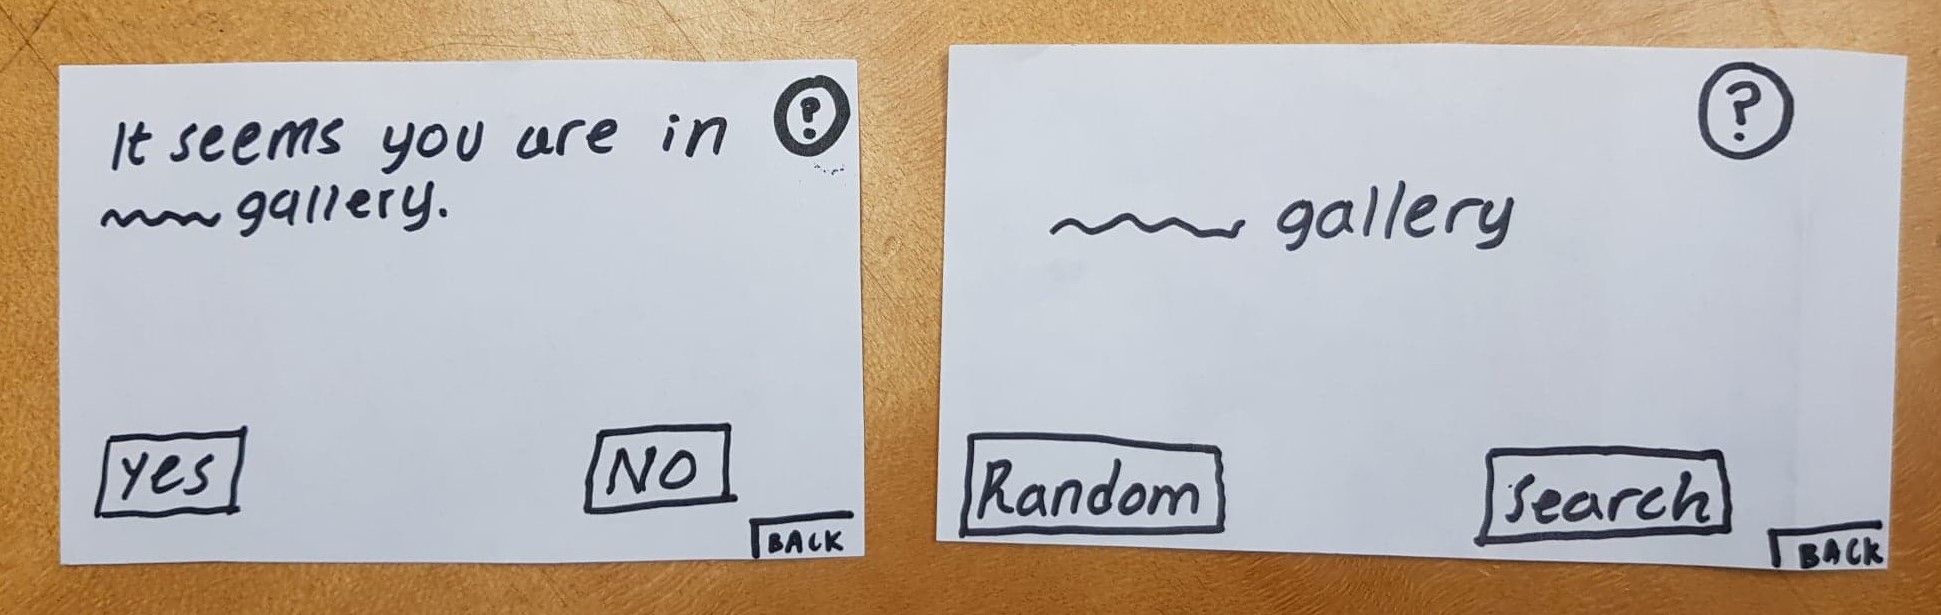 It seems you are in ?
gallery.
yes NO
BACK
?
gallery
Random Search
BACK